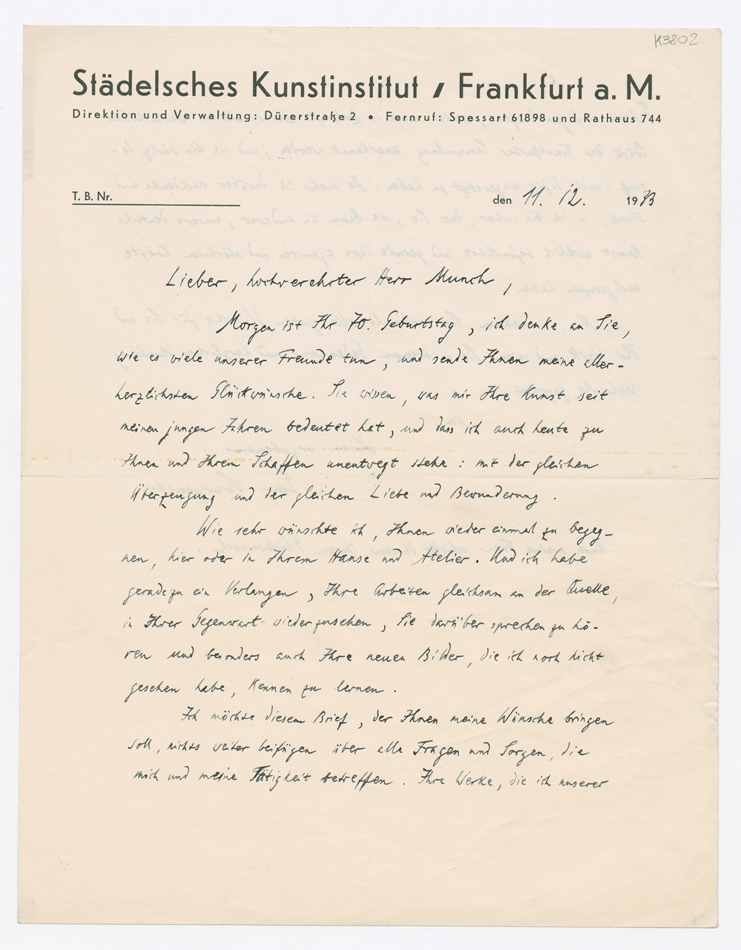 K3802
Städelsches Kunstinstitut / Frankfurt a. M.
Direktion und Verwaltung: Dürerstraße 2 • Fernruf: Spessart 61898 und Rathaus 744
T. B. Nr.
den 11. 12. 1933
Lieber, hochverehrter Herr Munch,
Morgen ist Ihr 70. Geburtstag, ich denke an Sie,
wie es viele unserer Freunde tun, und sende Ihnen meine aller-
herzlichsten Glückwünsche. Sie wissen, was mir Ihre Kunst seit
meinen jungen Jahren bedeutet hat, und dass ich auch heute zu
Ihnen und Ihrem Schaffen unentwegt stehe: mit der gleichen
Überzeugung und der gleichen Liebe und Bewunderung.
Wie sehr wünschte ich, Ihnen wieder einmal zu begeg-
nen, hier oder in Ihrem Hause und Atelier. Und ich habe
geradezu ein Verlangen, Ihre Arbeiten gleichsam an der Quelle,
in Ihrer Gegenwart wiederzusehen, Sie darüber sprechen zu hö-
ren und besonders auch Ihre neuen Bilder, die ich noch nicht
gesehen habe, kennen zu lernen.
Ich möchte diesem Brief, der Ihnen meine Wünsche bringen
soll, nichts weiter beifügen über alle Fragen und Sorgen, die
mich und meine Tätigkeit betreffen. Ihre Werke, die ich unserer